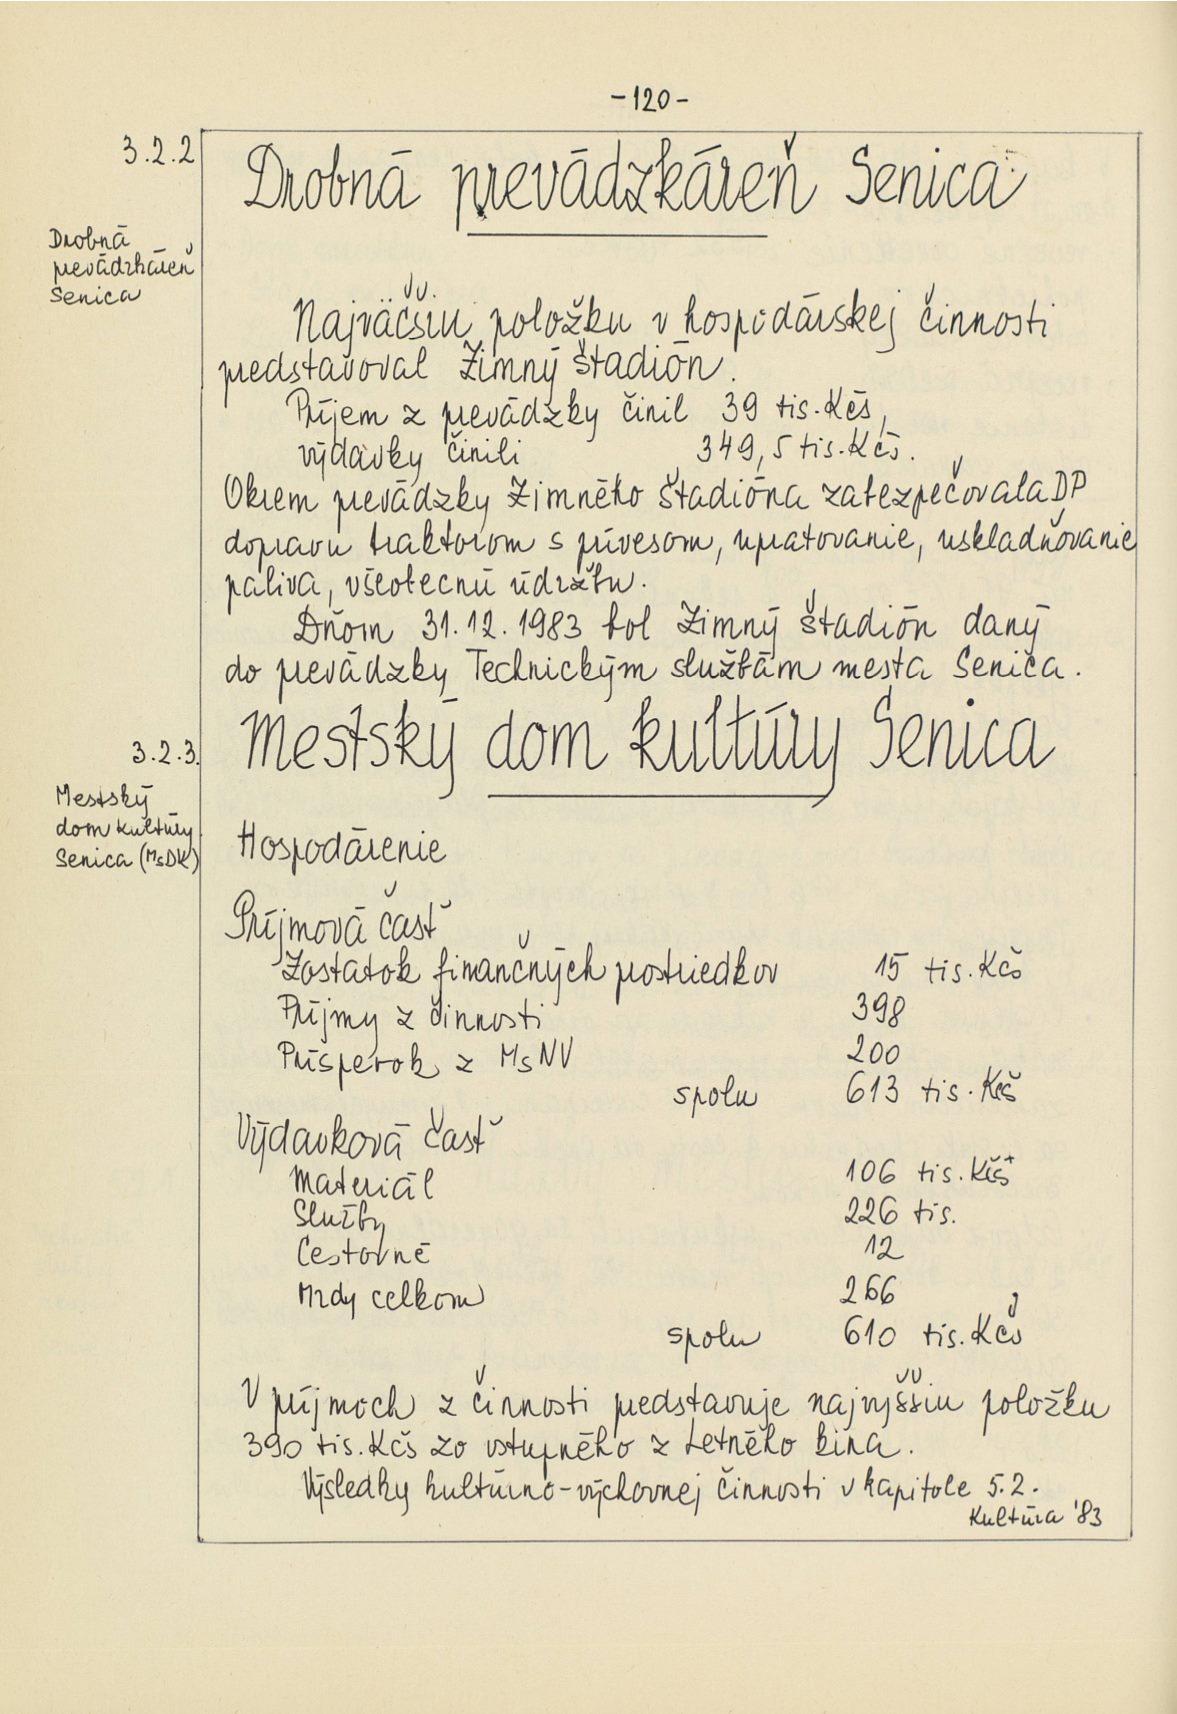 -120-
3.2.2
Drobná prevádzkáreň Senica
Drobná
prevádzkáreň
Senica
Najväčšiu položku v hospodárskej činnosti
predstavoval Zimný štadión.
Príjem z prevádzky činil 39 tis. Kčs,
výdavky činili 349,5 tis. Kčs.
Okrem prevádzky Zimného štadióna zabezpečovala DP
dopravu traktorom s prívesom, upratovanie, uskladňovanie
paliva, všeobecnú údržbu.
Dňom 31.12.1983 bol Zimný štadión daný
do prevádzky Technickým službám mesta Senica.
3.2.3.
Mestský dom kultúry Senica
Mestský
dom kultúry
Senica (MsDK)
Hospodárenie
Príjmová časť
Zostatok finančných prostriedkov 15 tis. Kčs
Príjmy z činnosti 398
Príspevok z MsNV 200
spolu 613 tis. Kčs
Výdavková časť
Materiál 106 tis. Kčs+
Služby 226 tis.
Cestovné 12
Mzdy celkom 266
spolu 610 tis. Kčs
V príjmoch z činnosti predstavuje najvyššiu položku
390 tis. Kčs zo vstupného z Letného kina.
Výsledky kultúrno-výchovnej činnosti v kapitole 5.2.
Kultúra '83